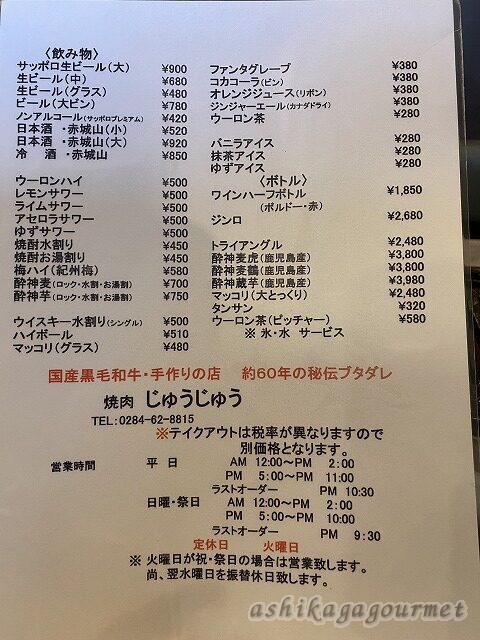 〈飲み物〉
サッポロ生ビール(大) ¥900
生ビール(中) ¥680
生ビール(グラス) ¥480
ビール(大ビン) ¥780
ノンアルコール(サッポロプレミアム) ¥420
日本酒 ・赤城山(小) ¥520
日本酒 ・赤城山(大) ¥920
冷 酒 ・赤城山 ¥850
ウーロンハイ ¥500
レモンサワー ¥500
ライムサワー ¥500
アセロラサワー ¥500
ゆずサワー ¥500
焼酎水割り ¥450
焼酎お湯割り ¥450
梅ハイ(紀州梅) ¥580
酔神麦(ロック・水割・お湯割) ¥700
酔神芋(ロック・水割・お湯割) ¥750
ウイスキー水割り(シングル) ¥500
ハイボール ¥510
マッコリ(グラス) ¥480
ファンタグレープ ¥380
コカコーラ(ビン) ¥380
オレンジジュース(リボン) ¥380
ジンジャーエール(カナダドライ) ¥380
ウーロン茶 ¥280
バニラアイス ¥280
抹茶アイス ¥280
ゆずアイス ¥280
〈ボトル〉
ワインハーフボトル ¥1,850
(ボルドー・赤)
ジンロ ¥2,680
トライアングル ¥2,480
酔神麦虎(鹿児島産) ¥3,800
酔神麦鶴(鹿児島産) ¥3,800
酔神蔵芋(鹿児島産) ¥3,980
マッコリ(大とっくり) ¥2,480
タンサン ¥320
ウーロン茶(ピッチャー) ¥580
※ 氷・水 サービス
国産黒毛和牛・手作りの店 約60年の秘伝ブタダレ
焼肉 じゅうじゅう
TEL:0284-62-8815
※テイクアウトは税率が異なりますので
別価格となります。
営業時間 平 日 AM 12:00~PM 2:00
PM 5:00~PM 11:00
ラストオーダー PM 10:30
日曜・祭日 AM 12:00~PM 2:00
PM 5:00~PM 10:00
ラストオーダー PM 9:30
定休日 火曜日
※ 火曜日が祝・祭日の場合は営業致します。
尚、翌水曜日を振替休日致します。
ashikagagourmet